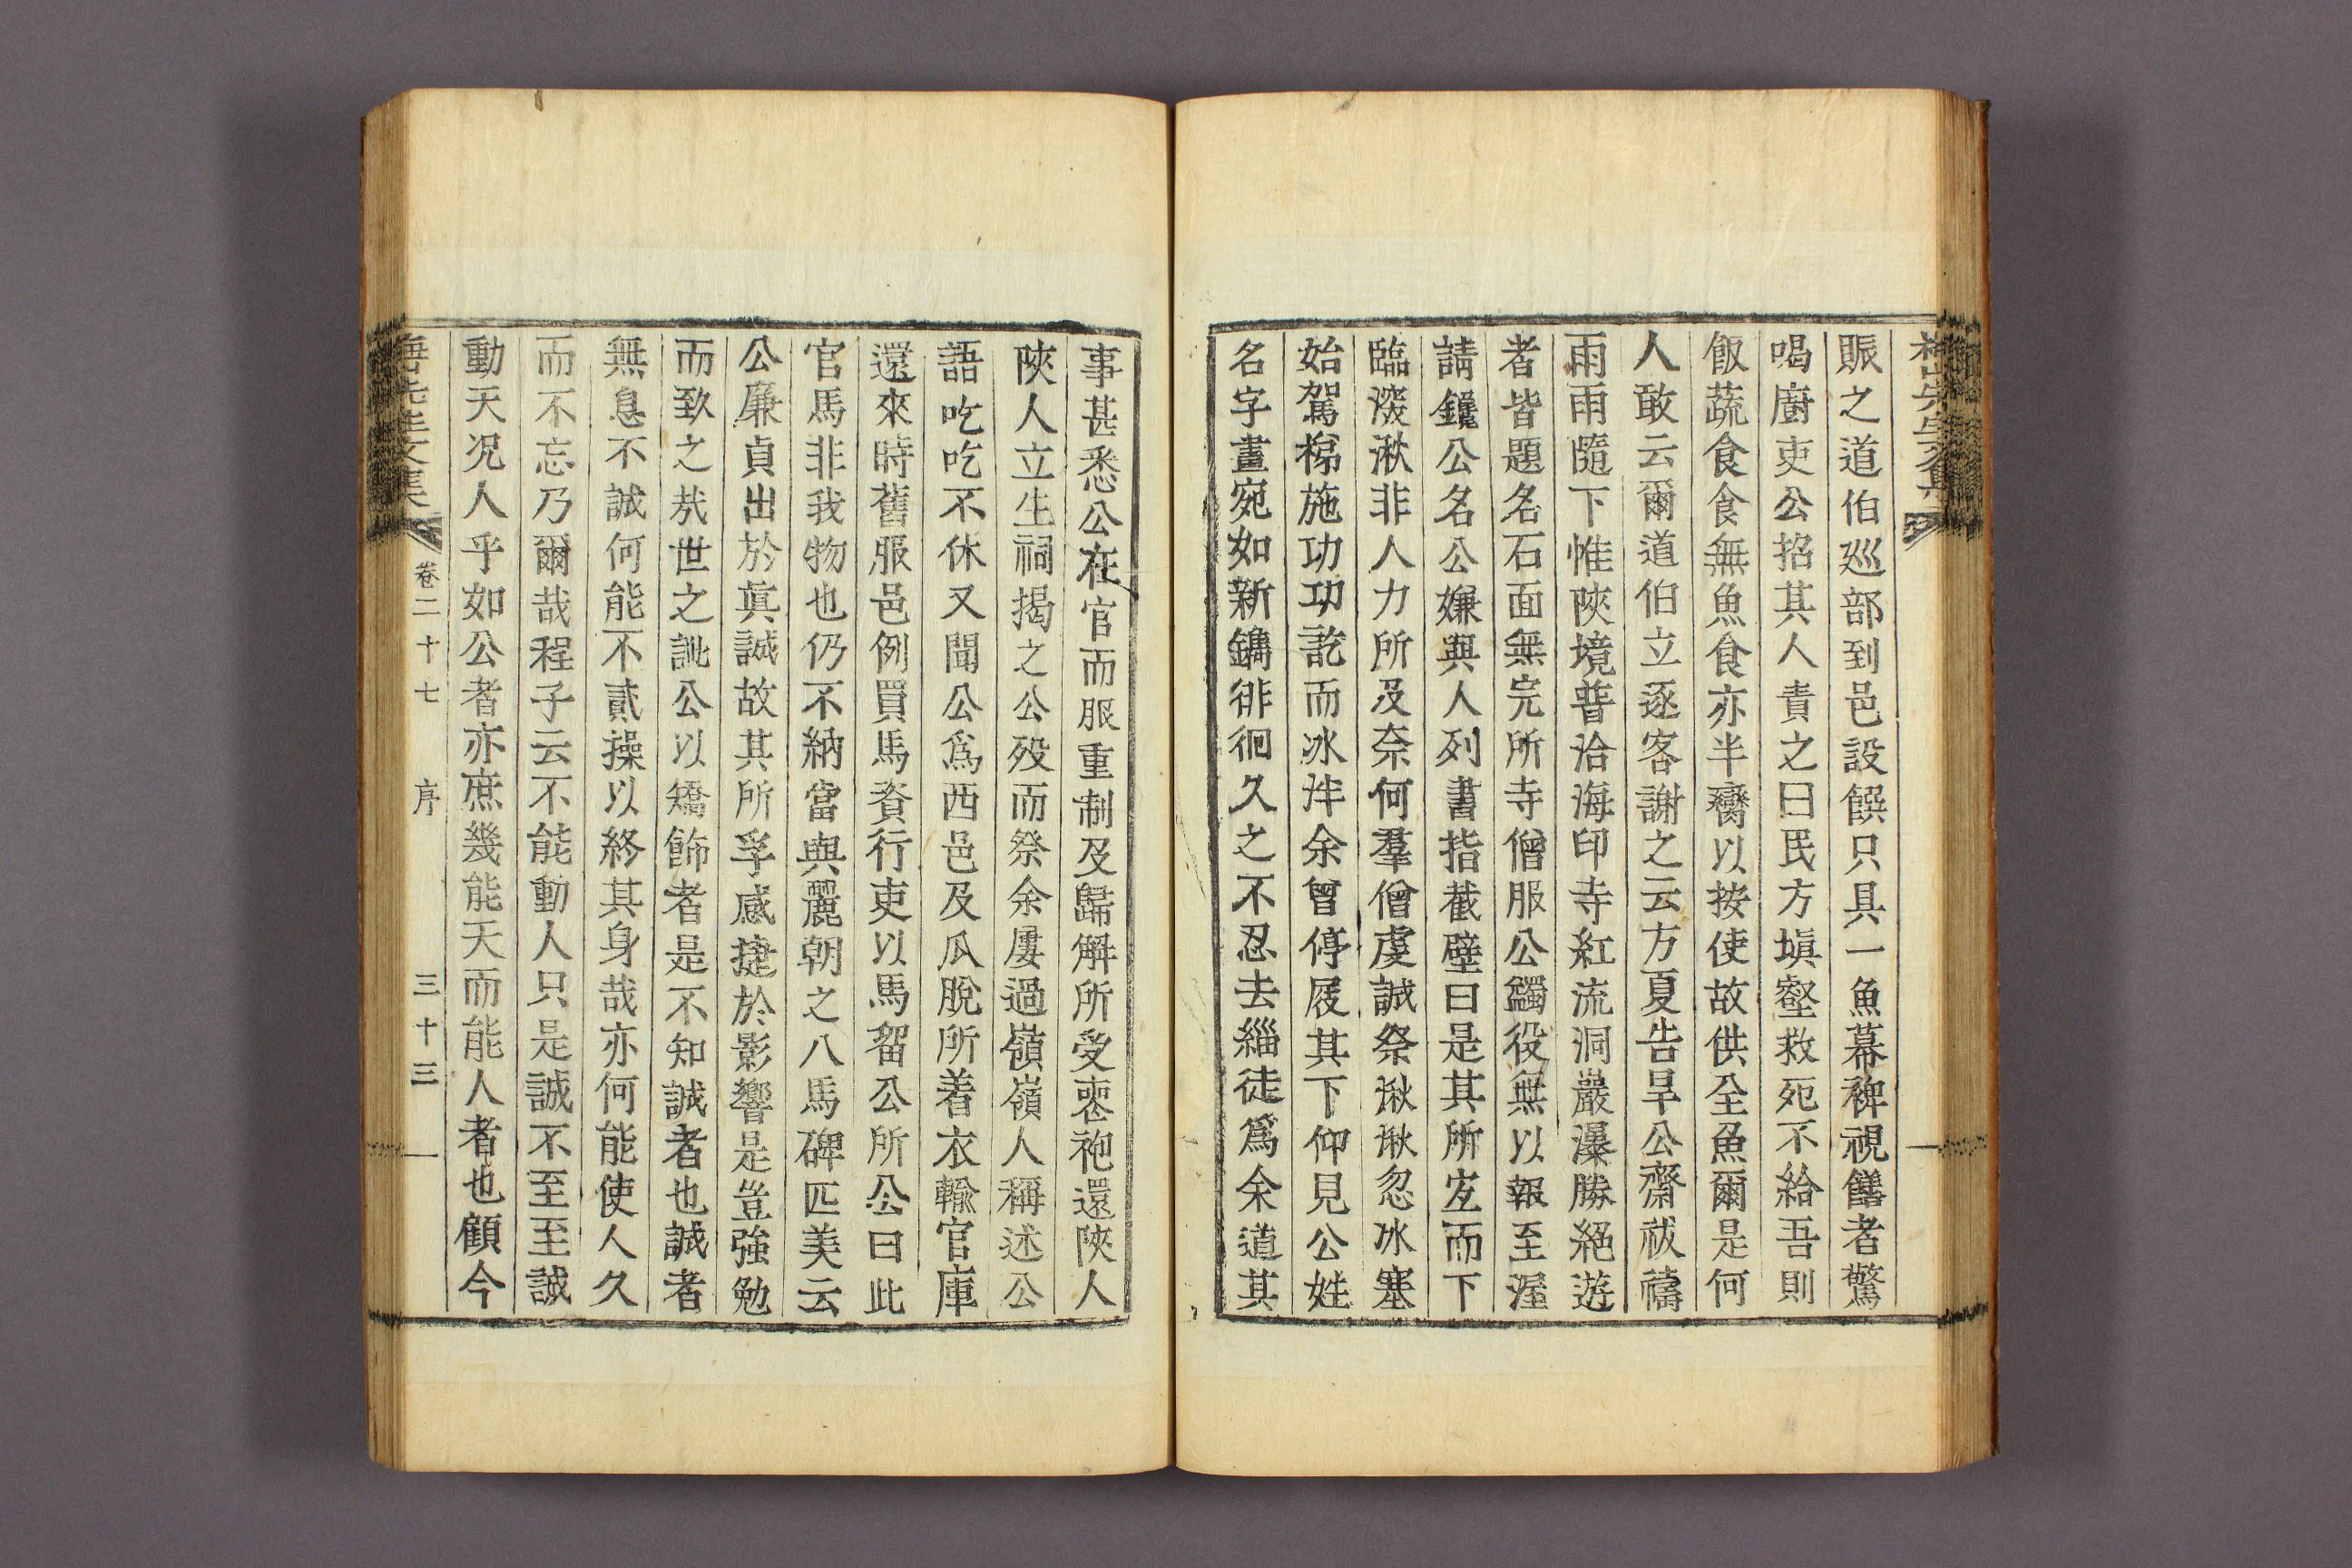 賑之道伯廵部到邑設饌只具一魚幕裨視饍者驚
喝廚吏公招其人責之曰民方塡壑救死不給吾則
飯蔬食食無魚食亦半臠以按使故供全魚爾是何
人敢云爾道伯立逐客謝之云方夏告旱公齋祓禱
雨雨隨下惟陜境普洽海印寺紅流洞巖瀑勝絕遊
者皆題名石面無完所寺僧服公蠲役無以報至渥
請鑱公名公嫌與人列書指截壁曰是其所宐而下
臨湥湫非人力所及奈何羣僧虔誠祭湫湫忽冰塞
始駕梯施功功訖而冰泮余曾停屐其下仰見公姓
名字畫宛如新鐫徘徊久之不忍去緇徒爲余道其
事甚悉公在官而服重制及歸解所受喪袍還陜人
陜人立生祠揭之公歿而祭余屢過嶺嶺人稱述公
語吃吃不休又聞公爲西邑及瓜脫所着衣輸官庫
還來時舊服邑例買馬資行吏以馬畱公所公曰此
官馬非我物也仍不納當與麗朝之八馬碑匹美云
公廉貞出於眞誠故其所孚感捷於影響是豈強勉
而致之㢤世之訿公以矯飾者是不知誠者也誠者
無息不誠何能不貳操以終其身哉亦何能使人久
而不忘乃爾哉程子云不能動人只是誠不至至誠
動天况人乎如公者亦庶幾能天而能人者也顧今
卷二十七 序 三十三